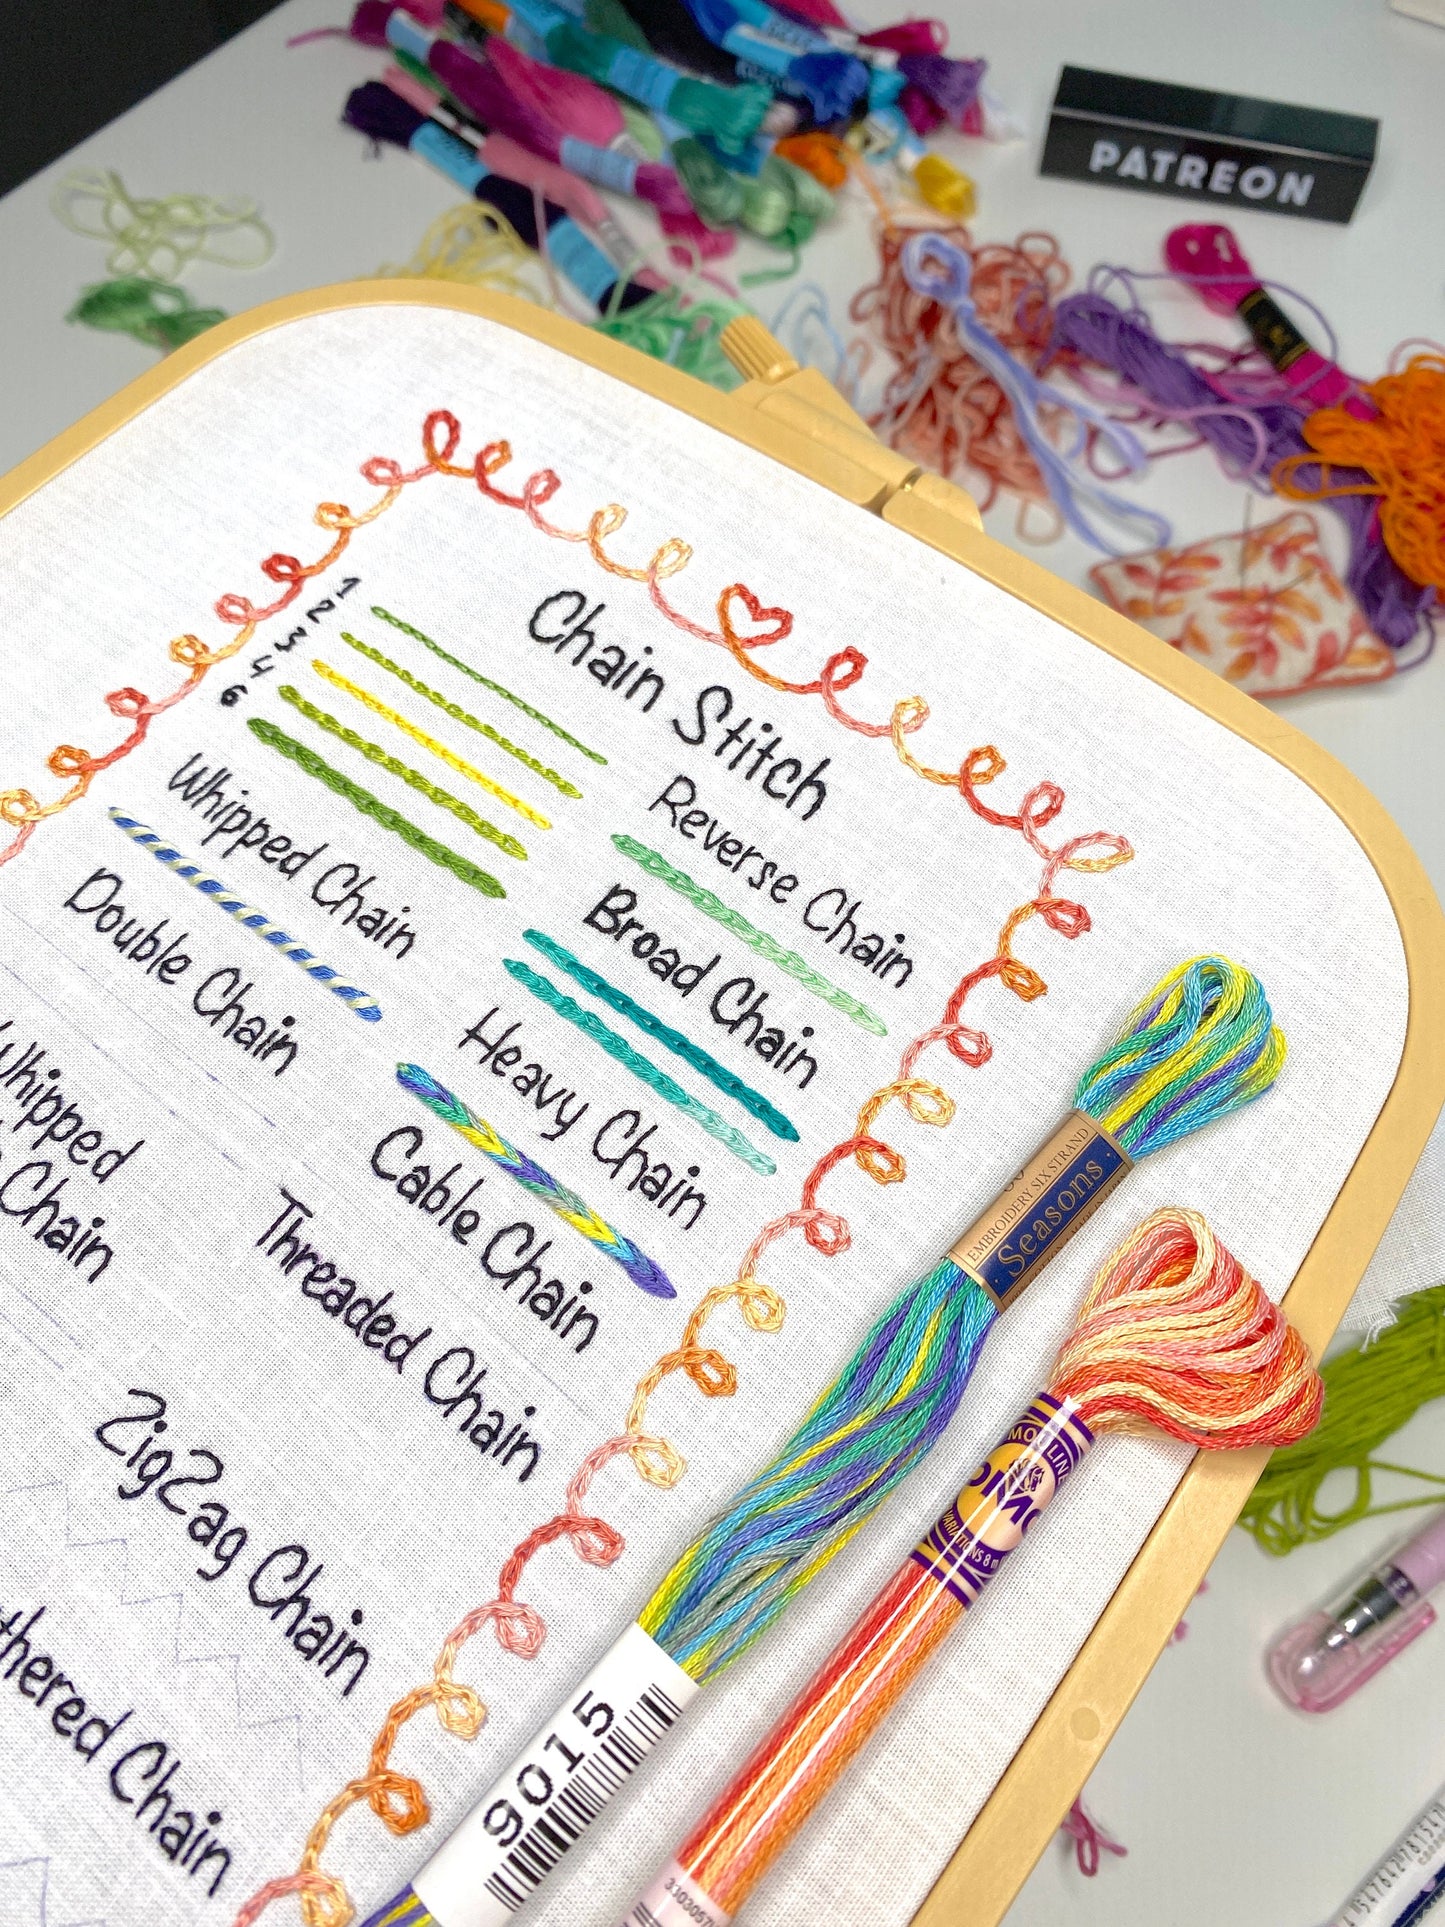 PATREON
Chain Stitch
1
2
3
4
6
Reverse Chain
Whipped Chain
Broad Chain
Double Chain
Heavy Chain
Whipped
Chain
Cable Chain
Threaded Chain
ZigZag Chain
thered Chain
EMBROIDERY SIX STRAND
Seasons
9015
MOULINE
DMC
VARIATIONS 8 m